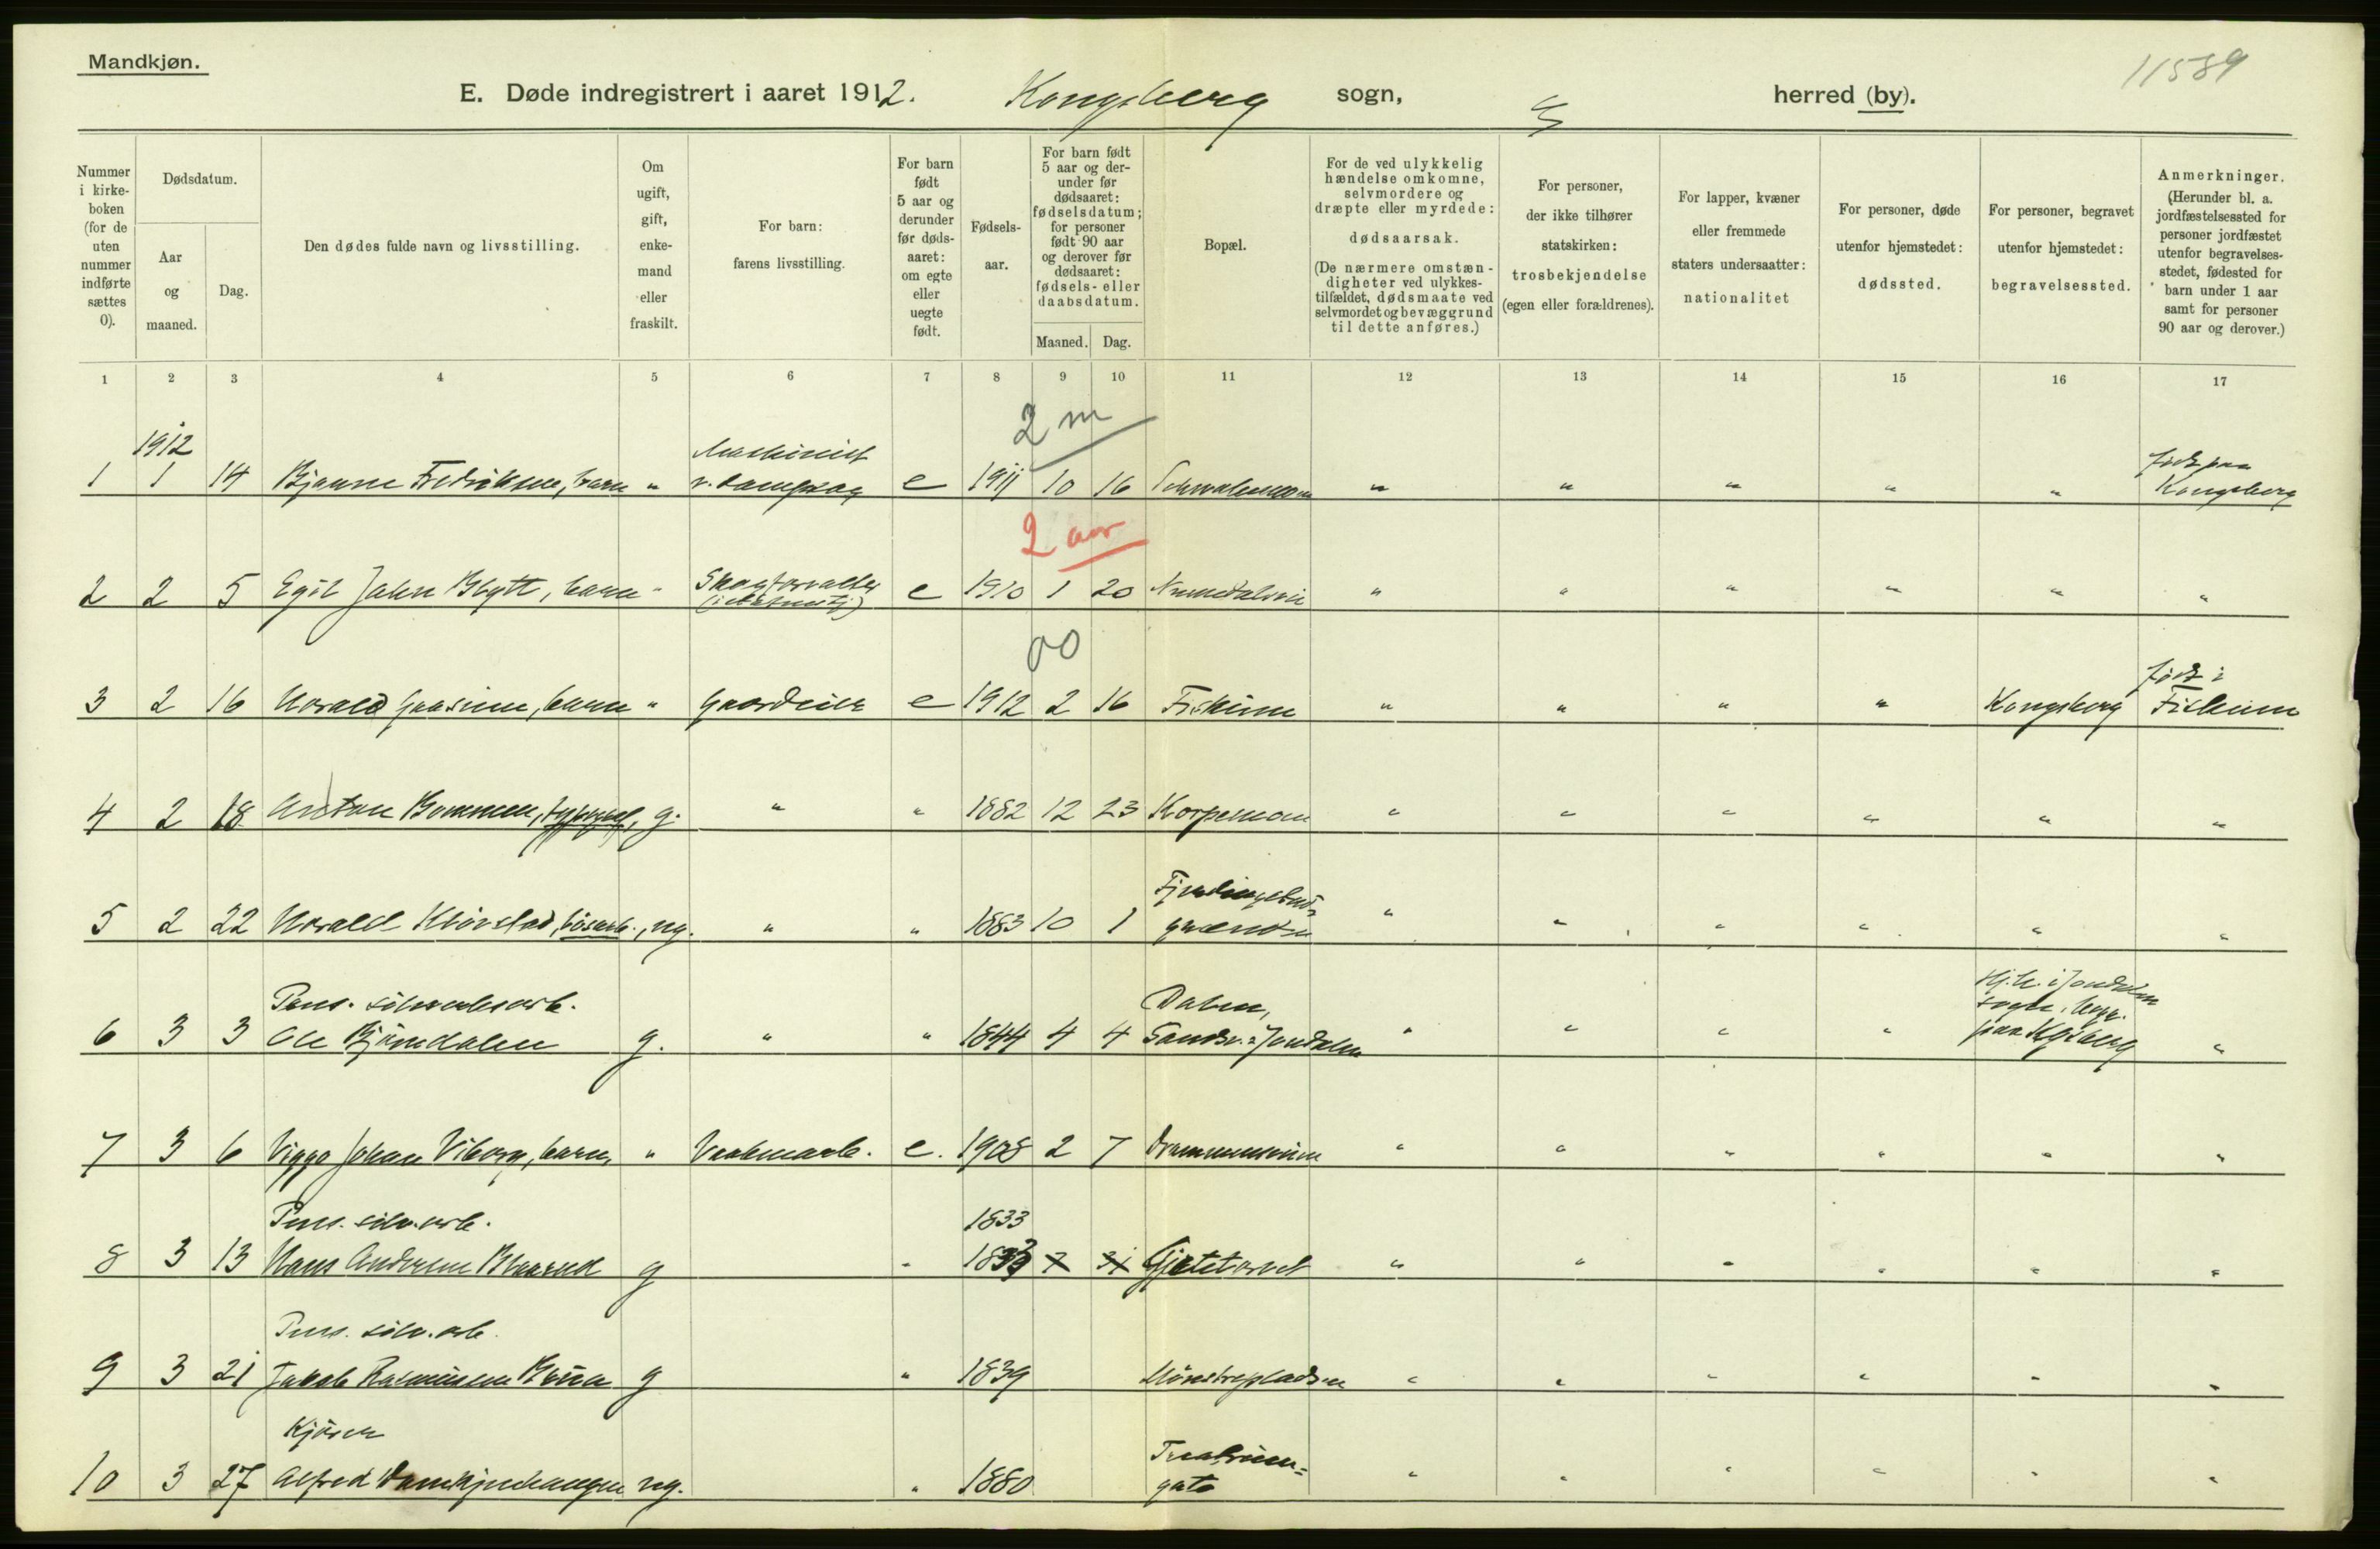 Mandkjøn.
11589
E. Døde indregistrert i aaret 1912. Kongsberg sogn, herred (by).
Nummer i kirkeboken (for de uten nummer indførte sættes 0).
Dødsdatum.
Aar og maaned.
Dag.
Den dødes fulde navn og livsstilling.
Om ugift, gift, enkemand eller fraskilt.
For barn: farens livsstilling.
For barn født 5 aar og derunder før dødsaaret: om egte eller uegte født.
Fødselsaar.
For barn født 5 aar og derunder før dødsaaret: fødselsdatum; for personer født 90 aar og derover før dødsaaret: fødsels- eller daabsdatum.
Maaned. Dag.
Bopæl.
For de ved ulykkelig hændelse omkomne, selvmordere og dræpte eller myrdede: dødsaarsak. (De nærmere omstændigheter ved ulykkestilfældet, dødsmaate ved selvmordet og bevæggrund til dette anføres.)
For personer, der ikke tilhører statskirken: trosbekjendelse (egen eller forældrenes).
For lapper, kvæner eller fremmede staters undersaatter: nationalitet
For personer, døde utenfor hjemstedet: dødssted.
For personer, begravet utenfor hjemstedet: begravelsessted.
Anmerkninger. (Herunder bl. a. jordfæstelsessted for personer jordfæstet utenfor begravelsesstedet, fødested for barn under 1 aar samt for personer 90 aar og derover.)
1 2 3 4 5 6 7 8 9 10 11 12 13 14 15 16 17
2 m
1912 Maskinist født paa
1 1 14 Bjarne Fredriksen, barn " v. dampsag e 1911 10 16 " " " " " Kongsberg
2 aar
2 2 5 Egil Jahn Blytt, barn " e 1910 1 20 Numedalsvei " " " " " "
00
født i
3 2 16 Harald Gaasum, barn " e 1912 2 16 Fiskum " " " " Kongsberg Fiskum
4 2 18 Anton Bommen, g. " " 1882 12 23 Korpemoen " " " " " "
5 2 22 Harald , ug. " " 1883 10 1 " " " " " "
Pens. sølvverksarb. Dalen,
6 3 3 Ole Bjørndalen g. " " 1844 4 4 Sandsv. Jondalen " " " " paa Kgsberg "
7 3 6 Viggo Johan Viborg, barn " Vaabenarb. e. 1908 2 7 Drammensveien " " " " " "
Pens. sølv.arb. 1833
8 3 13 Hans Andersen g " 1833 7 31 Gjetetorvet " " " " " "
Pens. sølv. arb.
9 3 21 Jakob Rasmussen g " 1839 Mønstrepladsen " " " " " "
10 3 27 Alfred ug. " 1880 gate " " " " " "